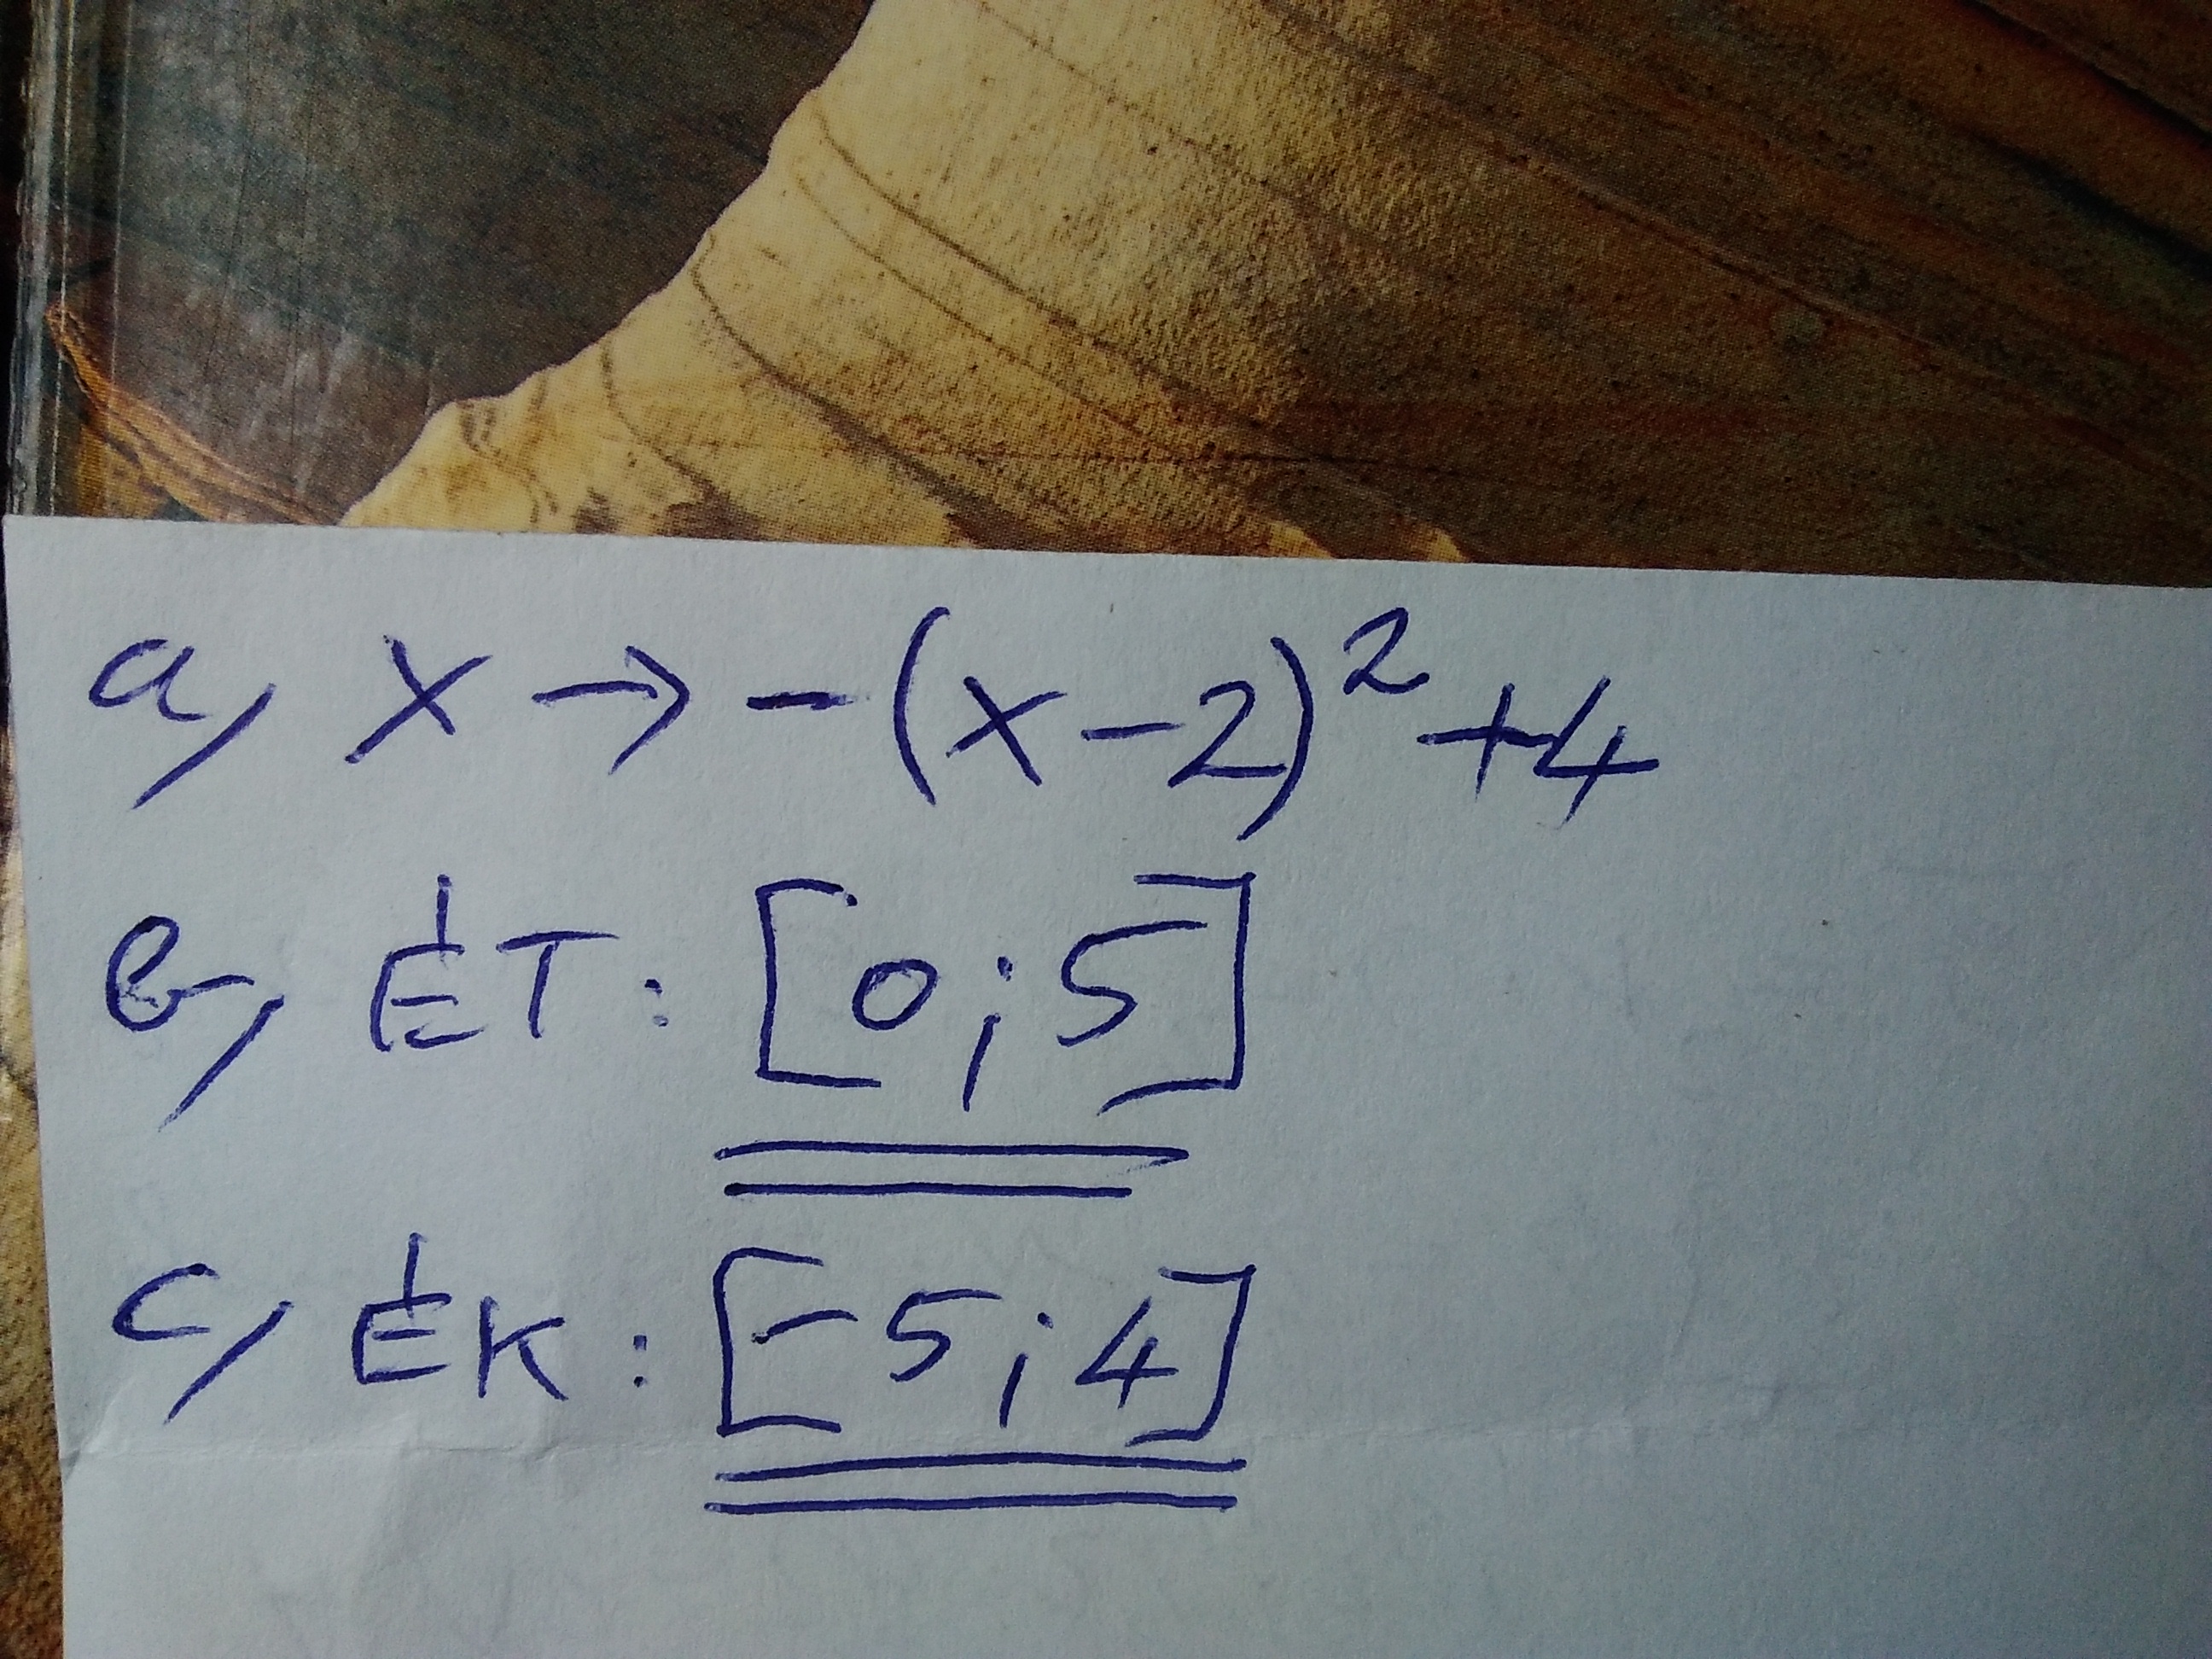 a, x → -(x-2)²+4
b, ÉT: [0;5]
c, ÉK: [-5;4]